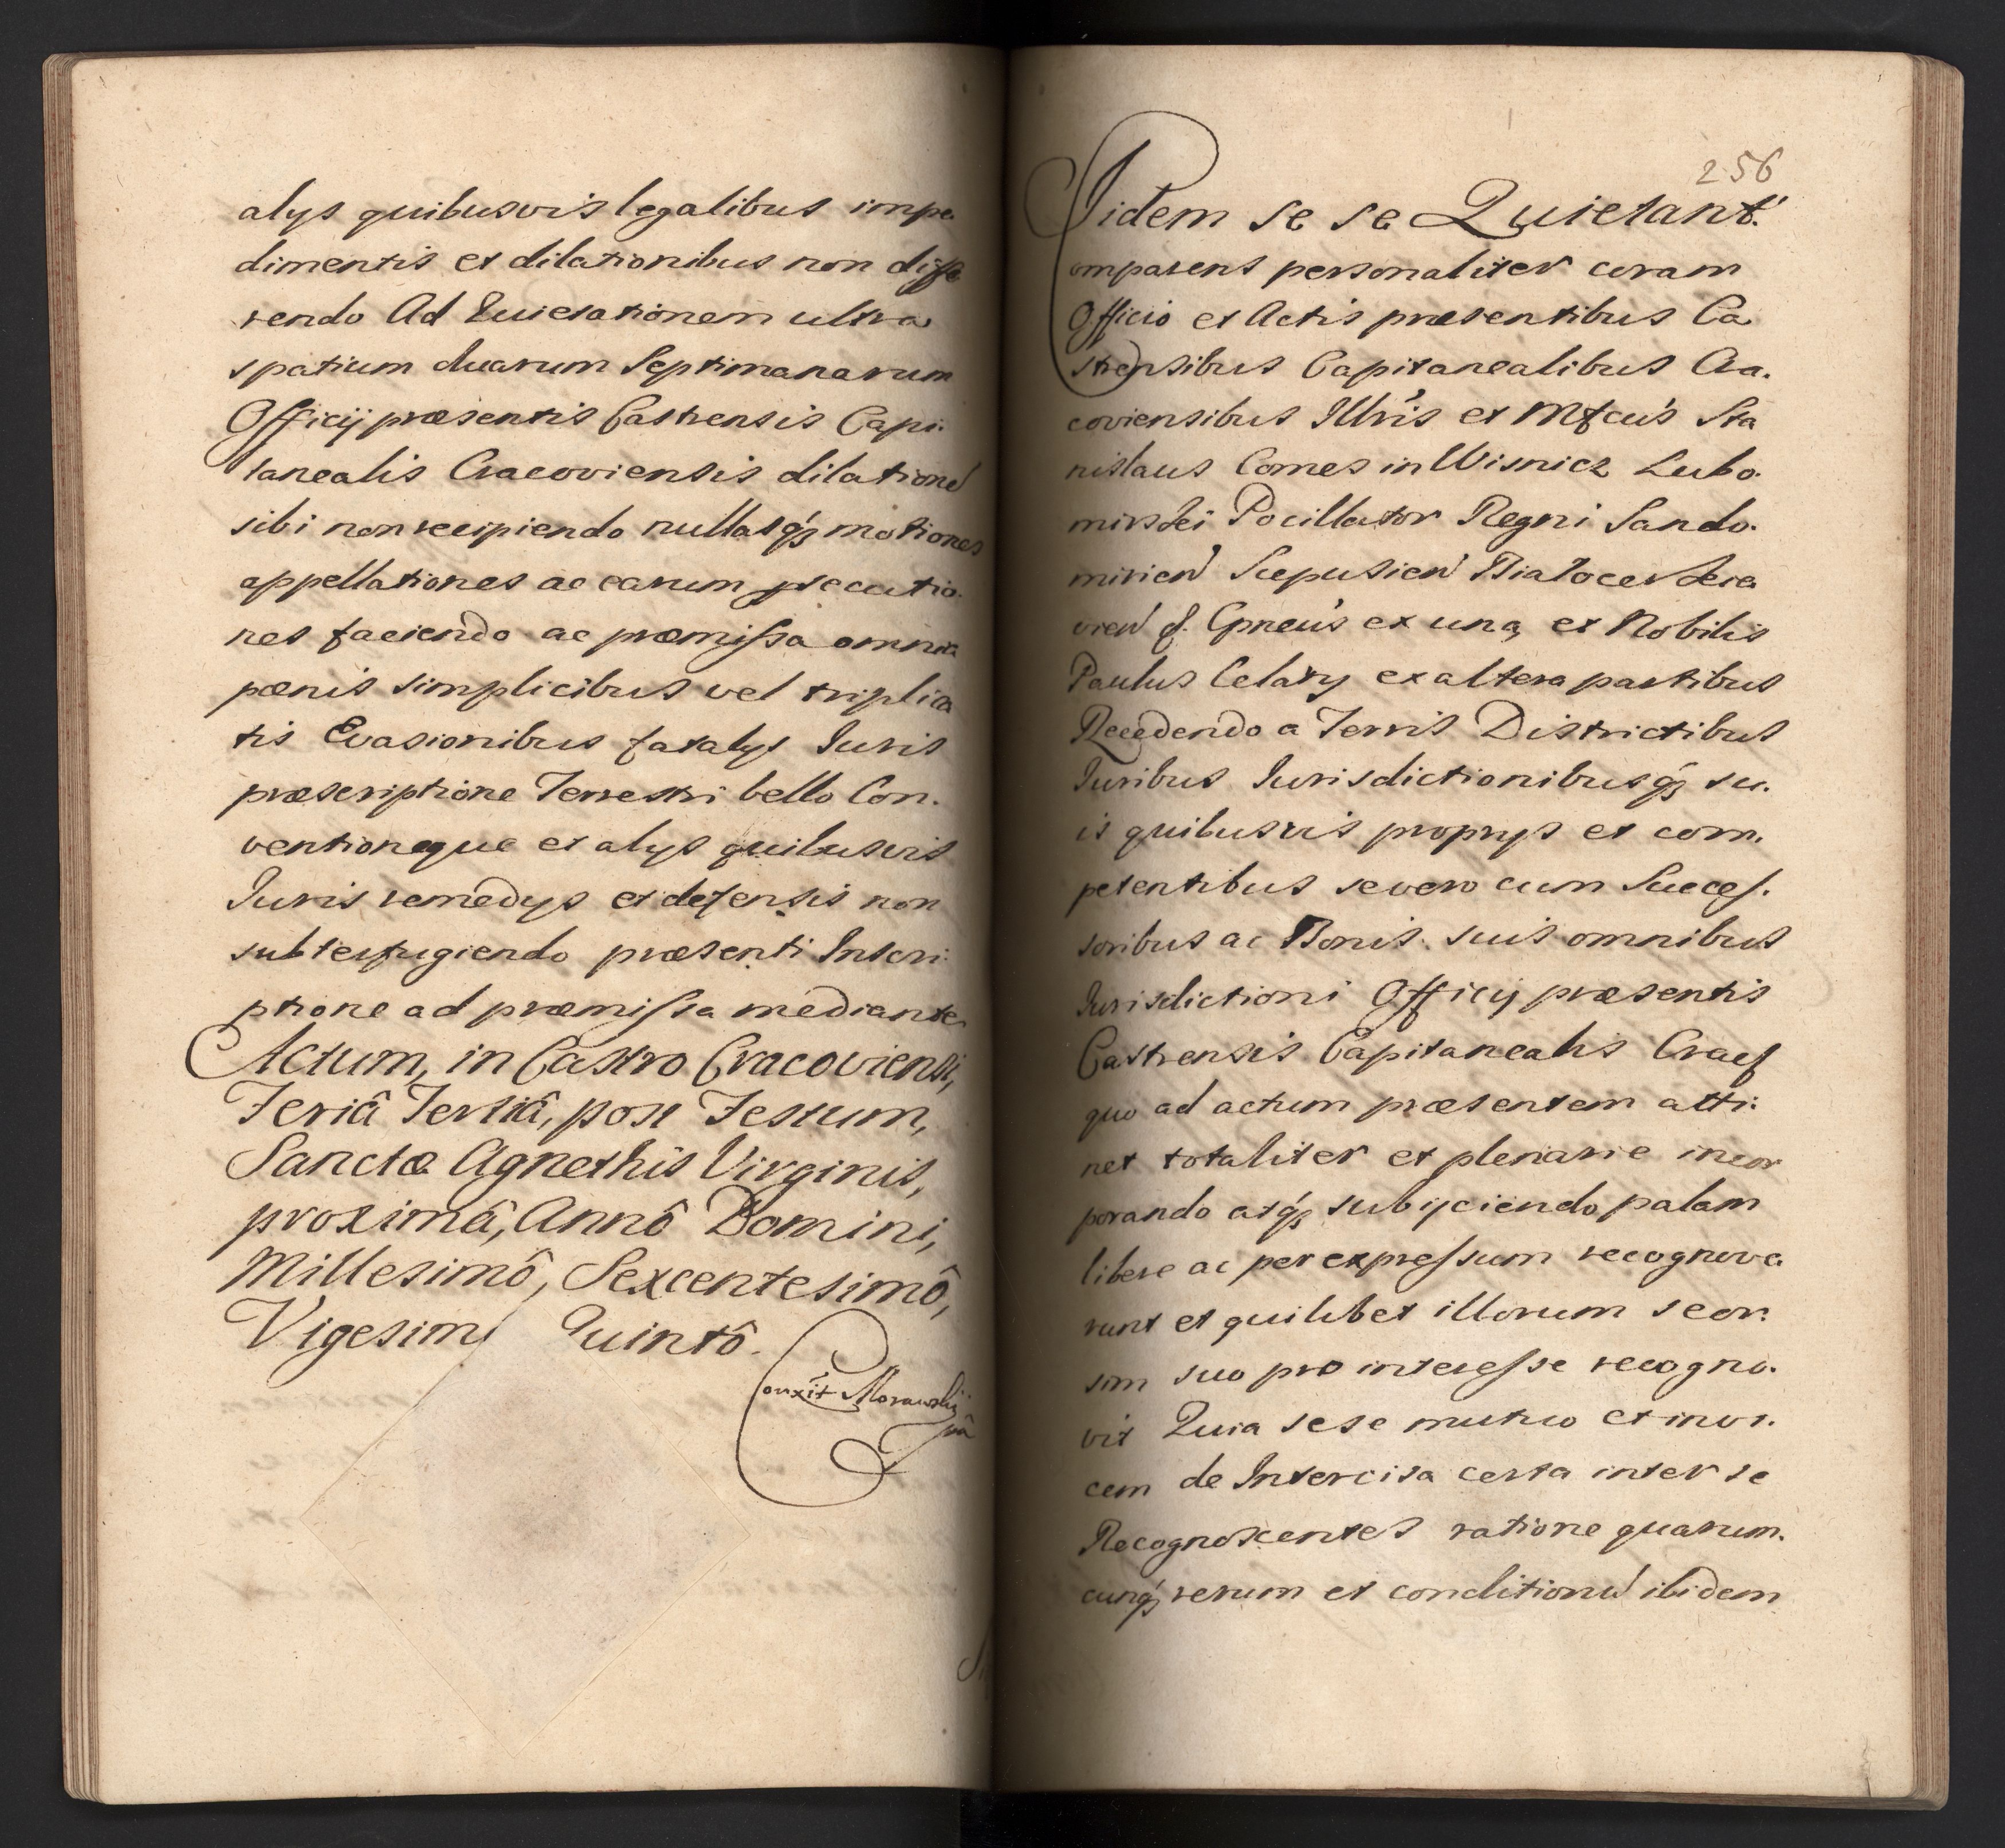 alys quibusvis legalibus impe
dimentis et dilationibus non diffe
rendo Ad Quietationem ultra
spatium duarum Septimanarum
Officij præsentis Castrensis Capi.
tanealis Cracoviensis dilatione
sibi non recipiendo nullasq́ꝫ motiones
appellationes ac earum ꝓsecutio.
nes faciendo ac præmissa omnia
pœnis simplicibus vel triplica
tis Evasionibus fatalys Iuris
præscriptione Terrestri bello Con.
ventioneque et alys quibusvis
Iuris remedys et defensis non
subterfugiendo præsenti Inscri.
ptione ad præmissa mediante
Actum, in Castro Cracoviensi,
Feriâ Tertiâ, post Festum,
Sanctæ Agnethis Virginis,
proximâ, Annô Domini,
Millesimô, Sexcentesimô,
Vigesim Quintô.
Conxit Morawskij
256
Iidem se se Quietant.
Comparens personaliter coram
Officio et Actis præsentibus Ca
strensibus Capitanealibus Cra.
coviensibus Illris et Mfcus Sta
nislaus Comes in Wisnicz Lubo.
mirski Pocillator Regni Sando.
mirien Scepusien Białocerkie
vien Cpneus ex una, et Nobilis
Paulus Celary ex altera partibus
Recedendo a Terris Districtibus
Iuribus Iurisdictionibusq́ꝫ su.
is quibusvis proprys et com.
petentibus se vero cum Succes.
soribus ac Bonis suis omnibus
Iurisdictioni Officij præsentis
Castrensis Capitanealis Cracf
quo ad actum præsentem atti.
net totaliter et plenarie incor
porando atq́ꝫ subijciendo palam
libere ac per expressum recognove
runt et quilibet illorum seor.
sim suo pro interesse recogno.
vit Quia sese mutuo et invi.
cem de Intercisa certa inter se
Recognoscentes ratione quarum.
cunq́ꝫ rerum et conditionu ibidem